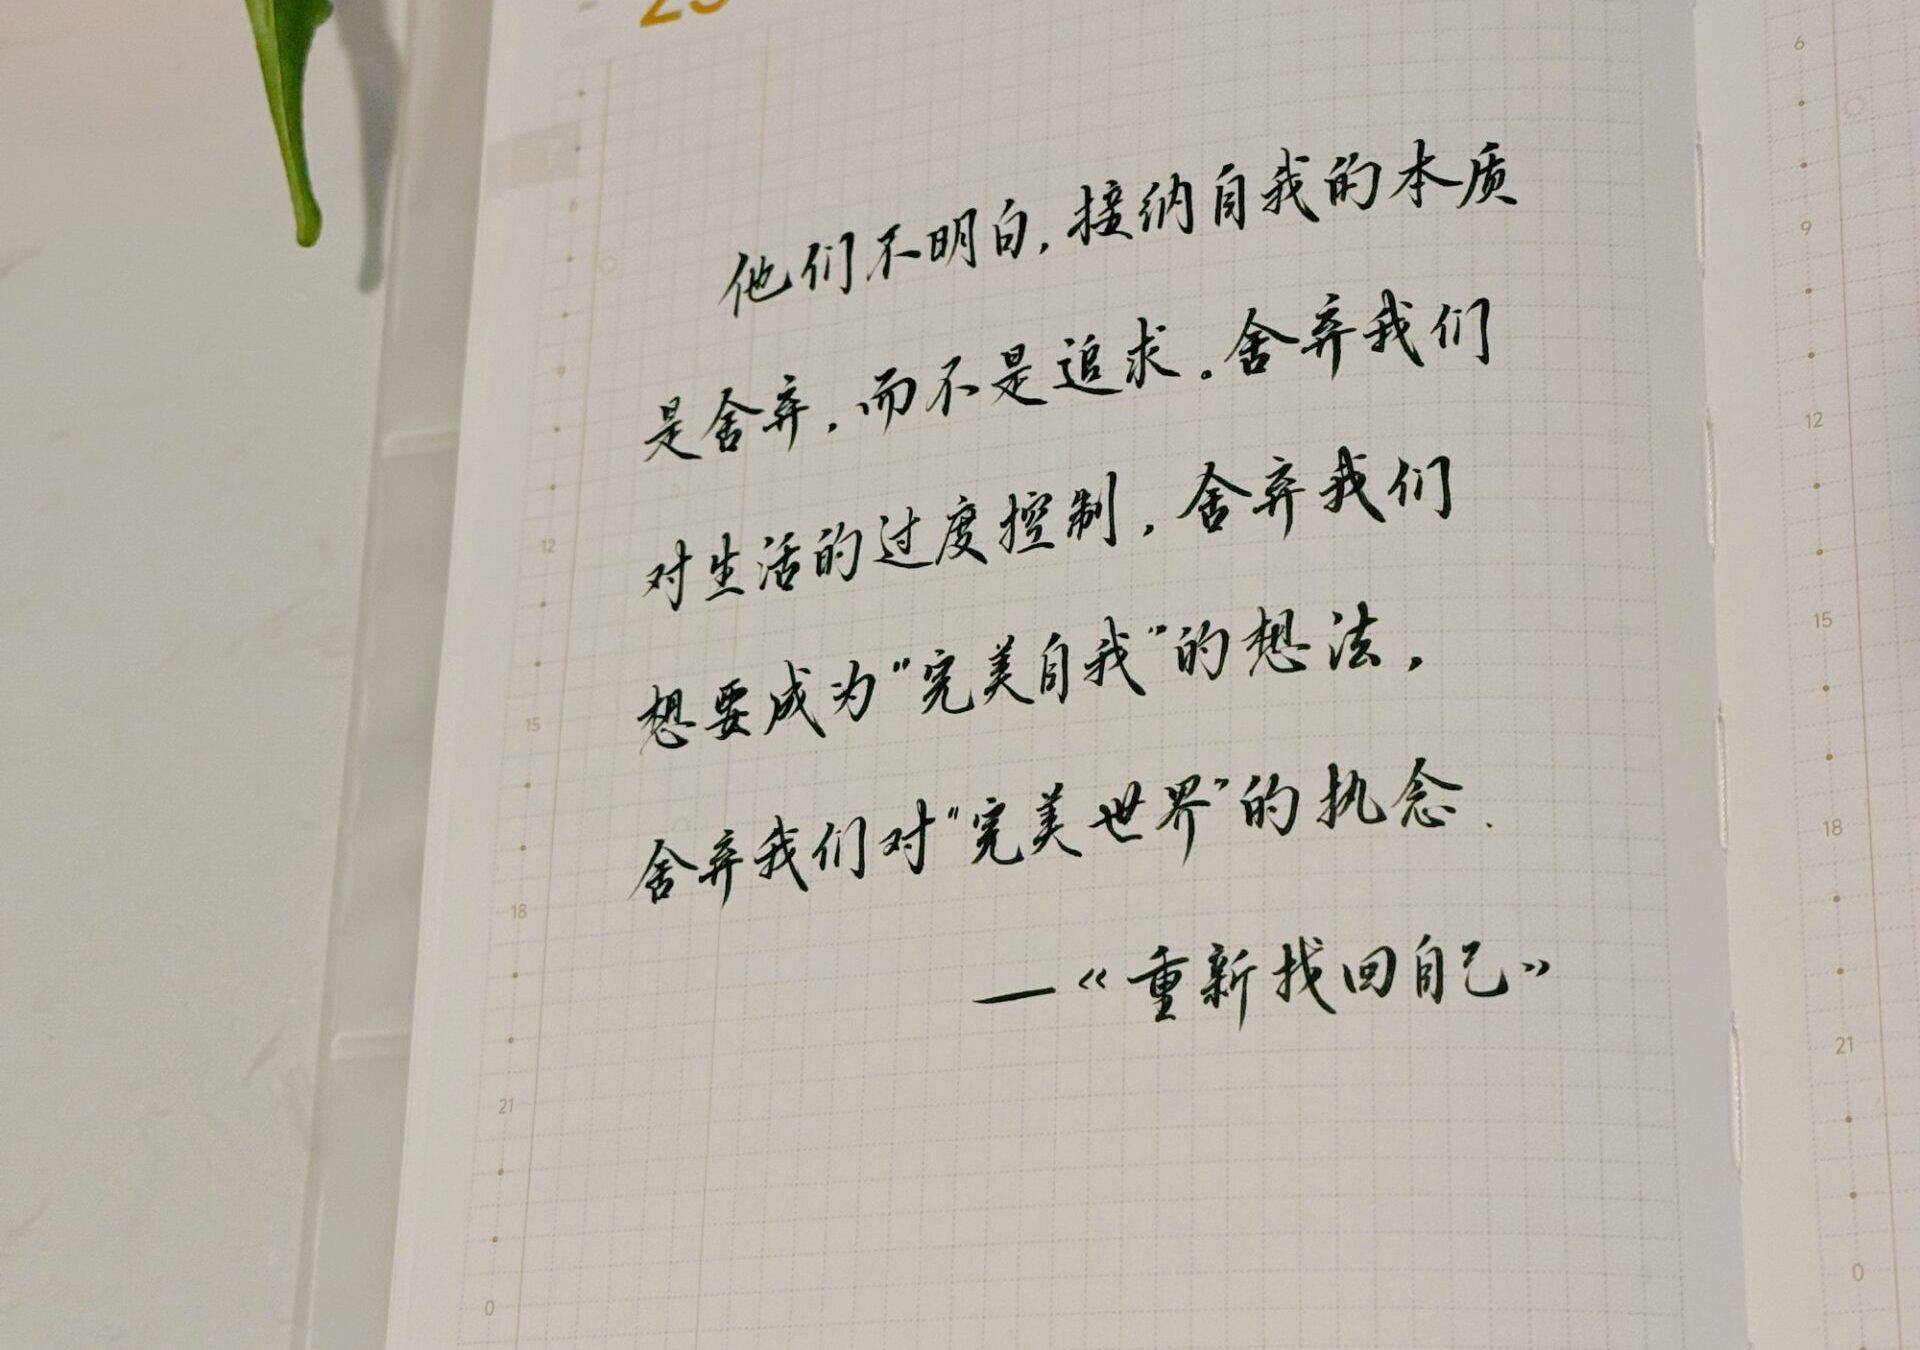 他们不明白,接纳自我的本质
是舍弃,而不是追求。舍弃我们
对生活的过度控制,舍弃我们
想要成为"完美自我"的想法,
舍弃我们对"完美世界"的执念.
—《重新找回自己》
6
9
12
15
18
21
0
6
9
12
15
18
21
0